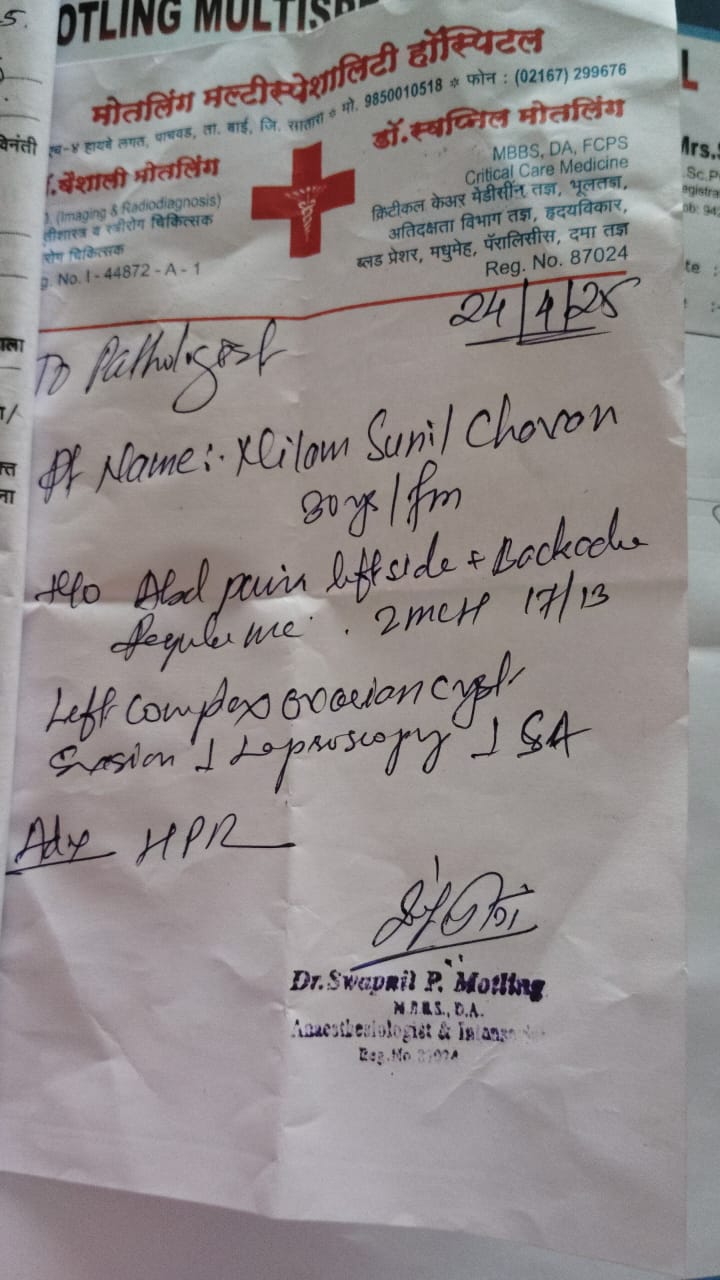 5.
OTLING MULTISPE
मोतलिंग मल्टीस्पेशालिटी हॉस्पिटल
एच-४ हायवे लगत, पाचवड, ता. वाई, जि. सातारा * मो. 9850010518 * फोन : (02167) 299676
.वैशाली मोतलिंग
(Imaging & Radiodiagnosis)
स्त्रीरोग चिकित्सक
रोग चिकित्सक
g. No. I - 44872 - A - 1
डॉ.स्वप्निल मोतलिंग
MBBS, DA, FCPS
Critical Care Medicine
क्रिटीकल केअर मेडीसीन तज्ञ, भूलतज्ञ,
अतिदक्षता विभाग तज्ञ, हृदयविकार,
ब्लड प्रेशर, मधुमेह, पॅरालिसीस, दमा तज्ञ
Reg. No. 87024
24/4/25
To Pathologist
Pt Name:- Nilam Sunil Chavan
30ys/fm
H/o Abd pain left side + Backache
Regular me. 2mcH 17/13
Left complex ovarian cyst
Laproscopy SA
Adv HPR
Dr. Swapnil P. Motling
M.B.B.S., D.A.
Anaesthesiologist & Intens
Reg. No 87024
विनंती
L
Mrs.S
.Sc.P
egistra
ob: 94
te :